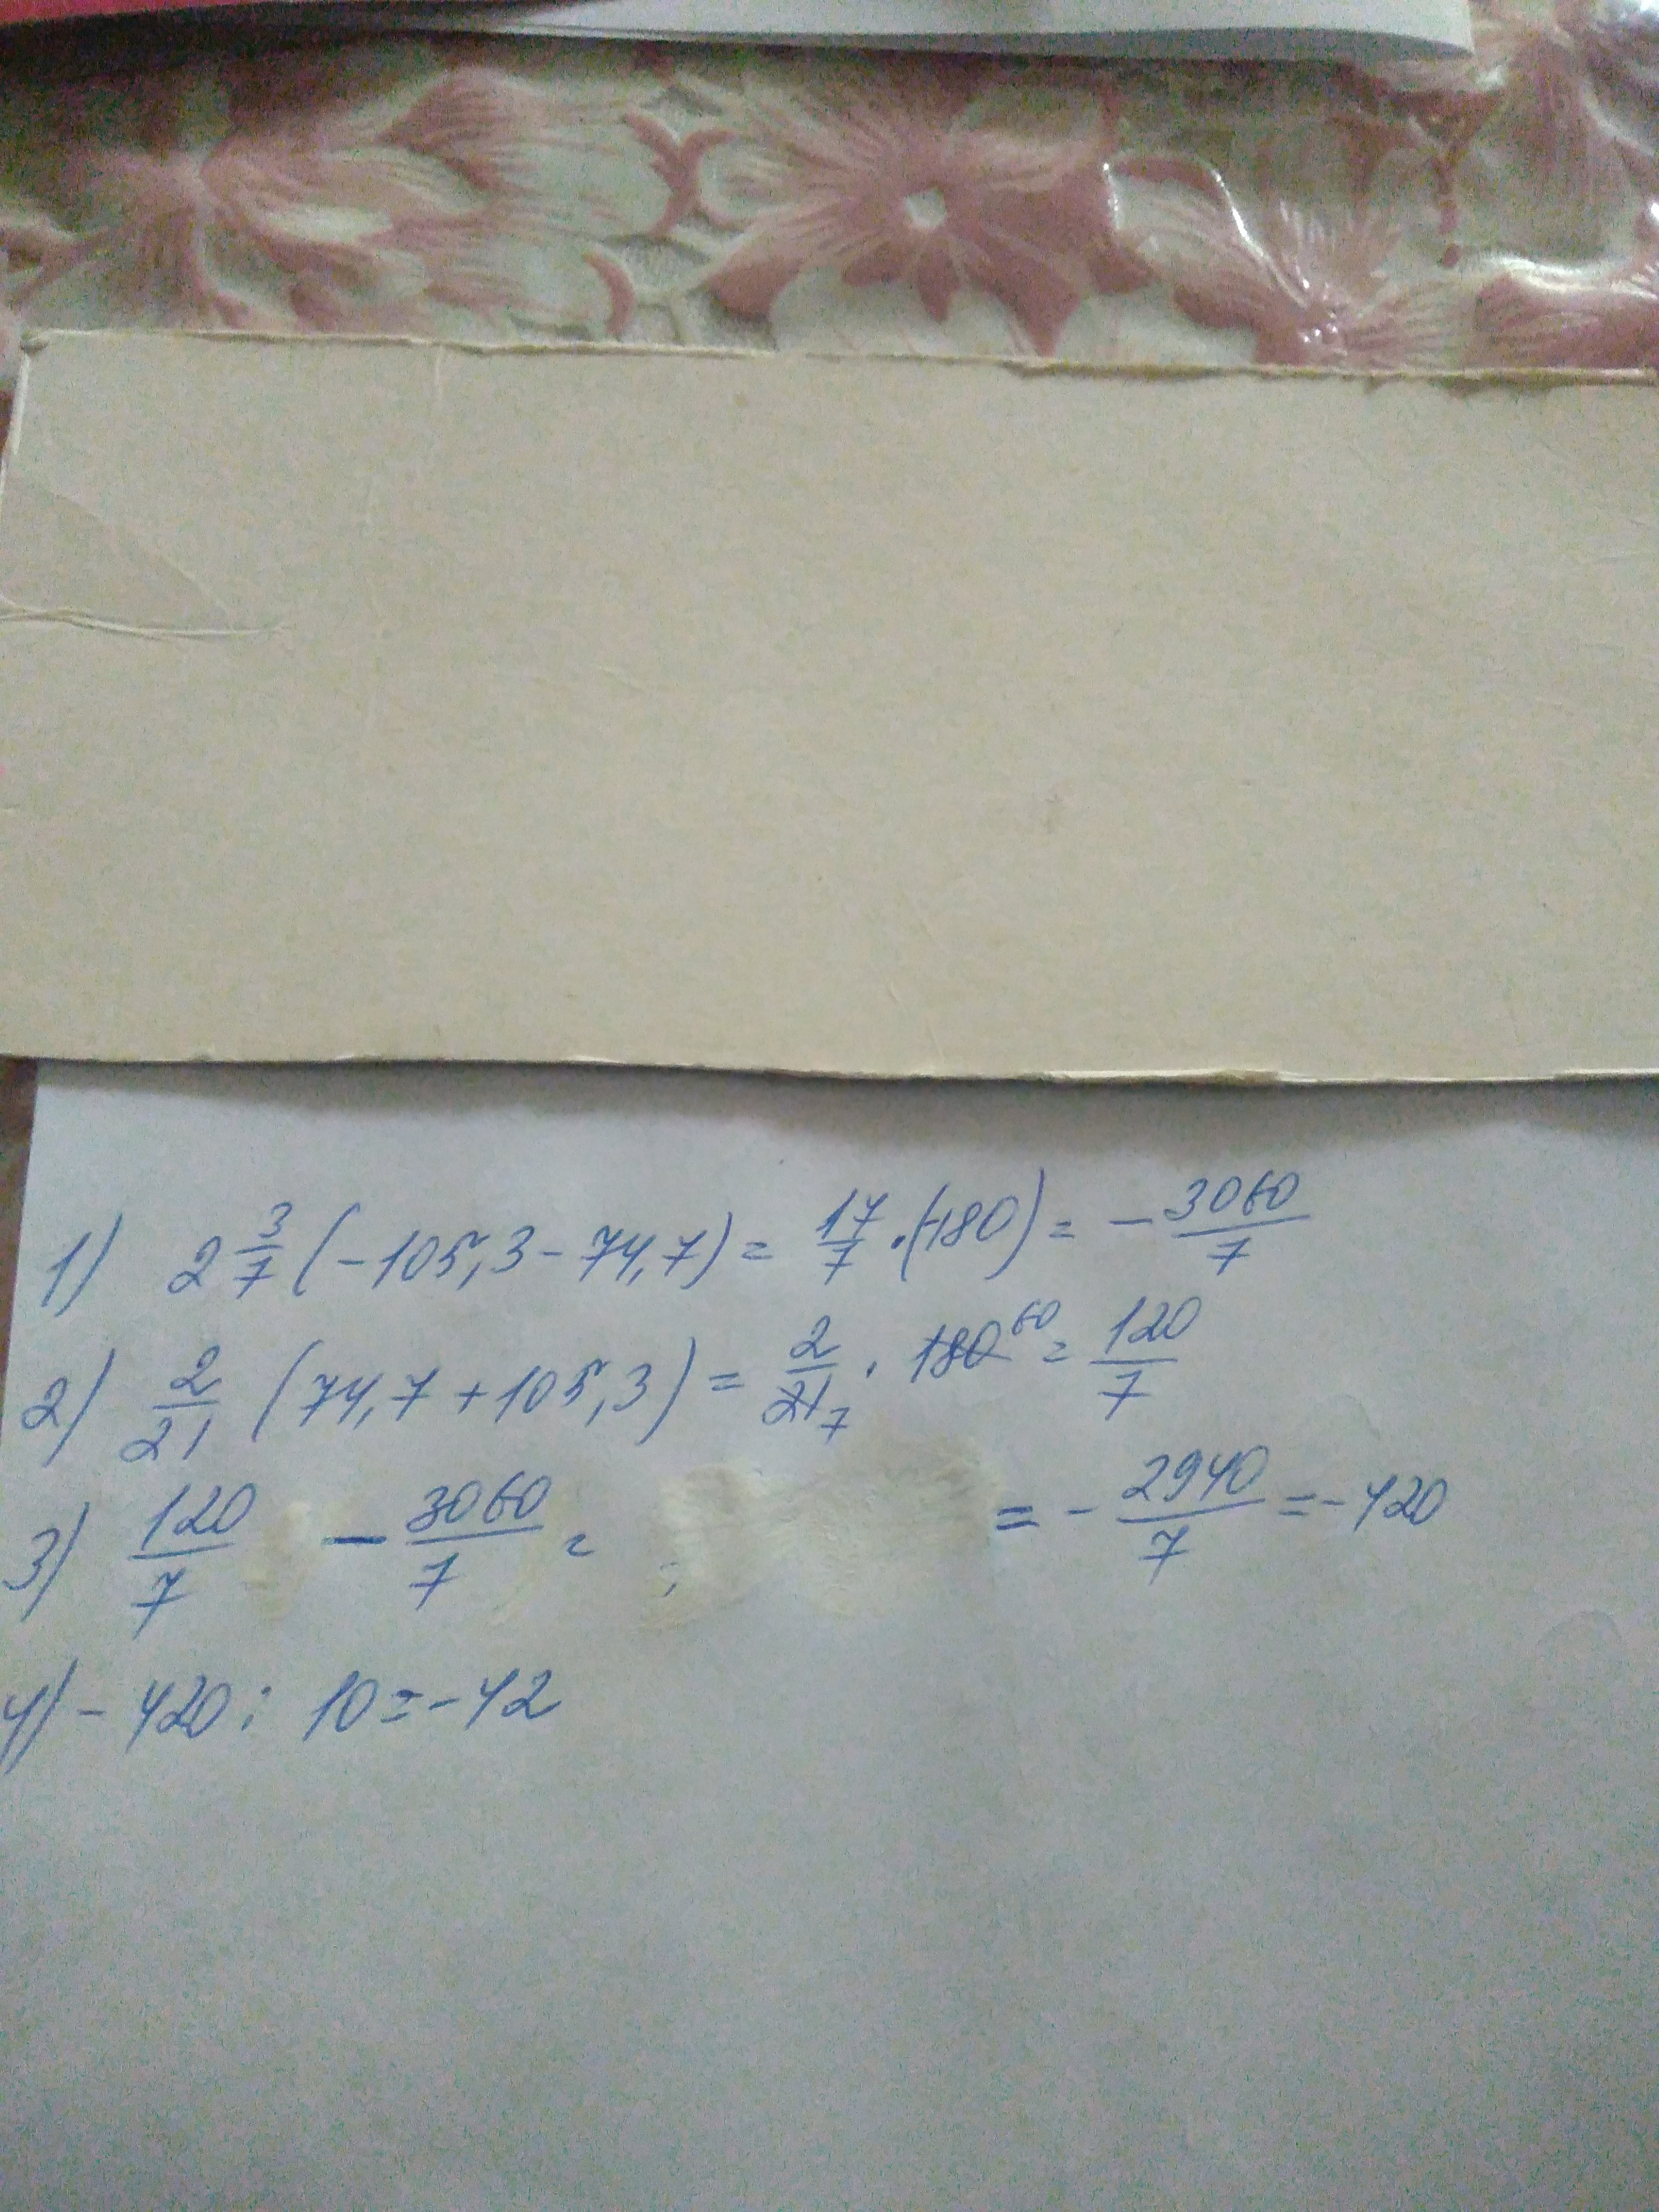 1) 2 3/7 (-105,3 - 74,7) = 17/7 · (-180) = - 3060/7
2) 2/21 (74,7 + 105,3) = 2/21 7 · 180 60 = 120/7
3) 120/7 - 3060/7 = = - 2940/7 = -420
4) - 420 : 10 = -42